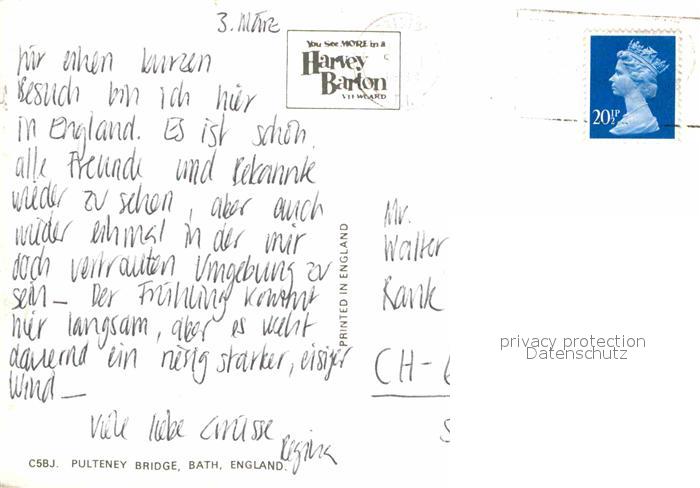 3. März
für einen kurzen
Besuch bin ich hier
in England. Es ist schön,
alle Freunde und Bekannte
wieder zu sehen, aber auch
wieder einmal in der mir
doch vertrauten Umgebung zu
sein – Der Frühling kommt
hier langsam, aber es weht
dauernd ein riesig starker, eisiger
Wind –
Viele liebe Grüsse
Regina
C5BJ. PULTENEY BRIDGE, BATH, ENGLAND.
PRINTED IN ENGLAND
You See MORE in a
Harvey
Barton
VIEWCARD
20½P
Mr.
Walter
CH-6
privacy protection
Datenschutz